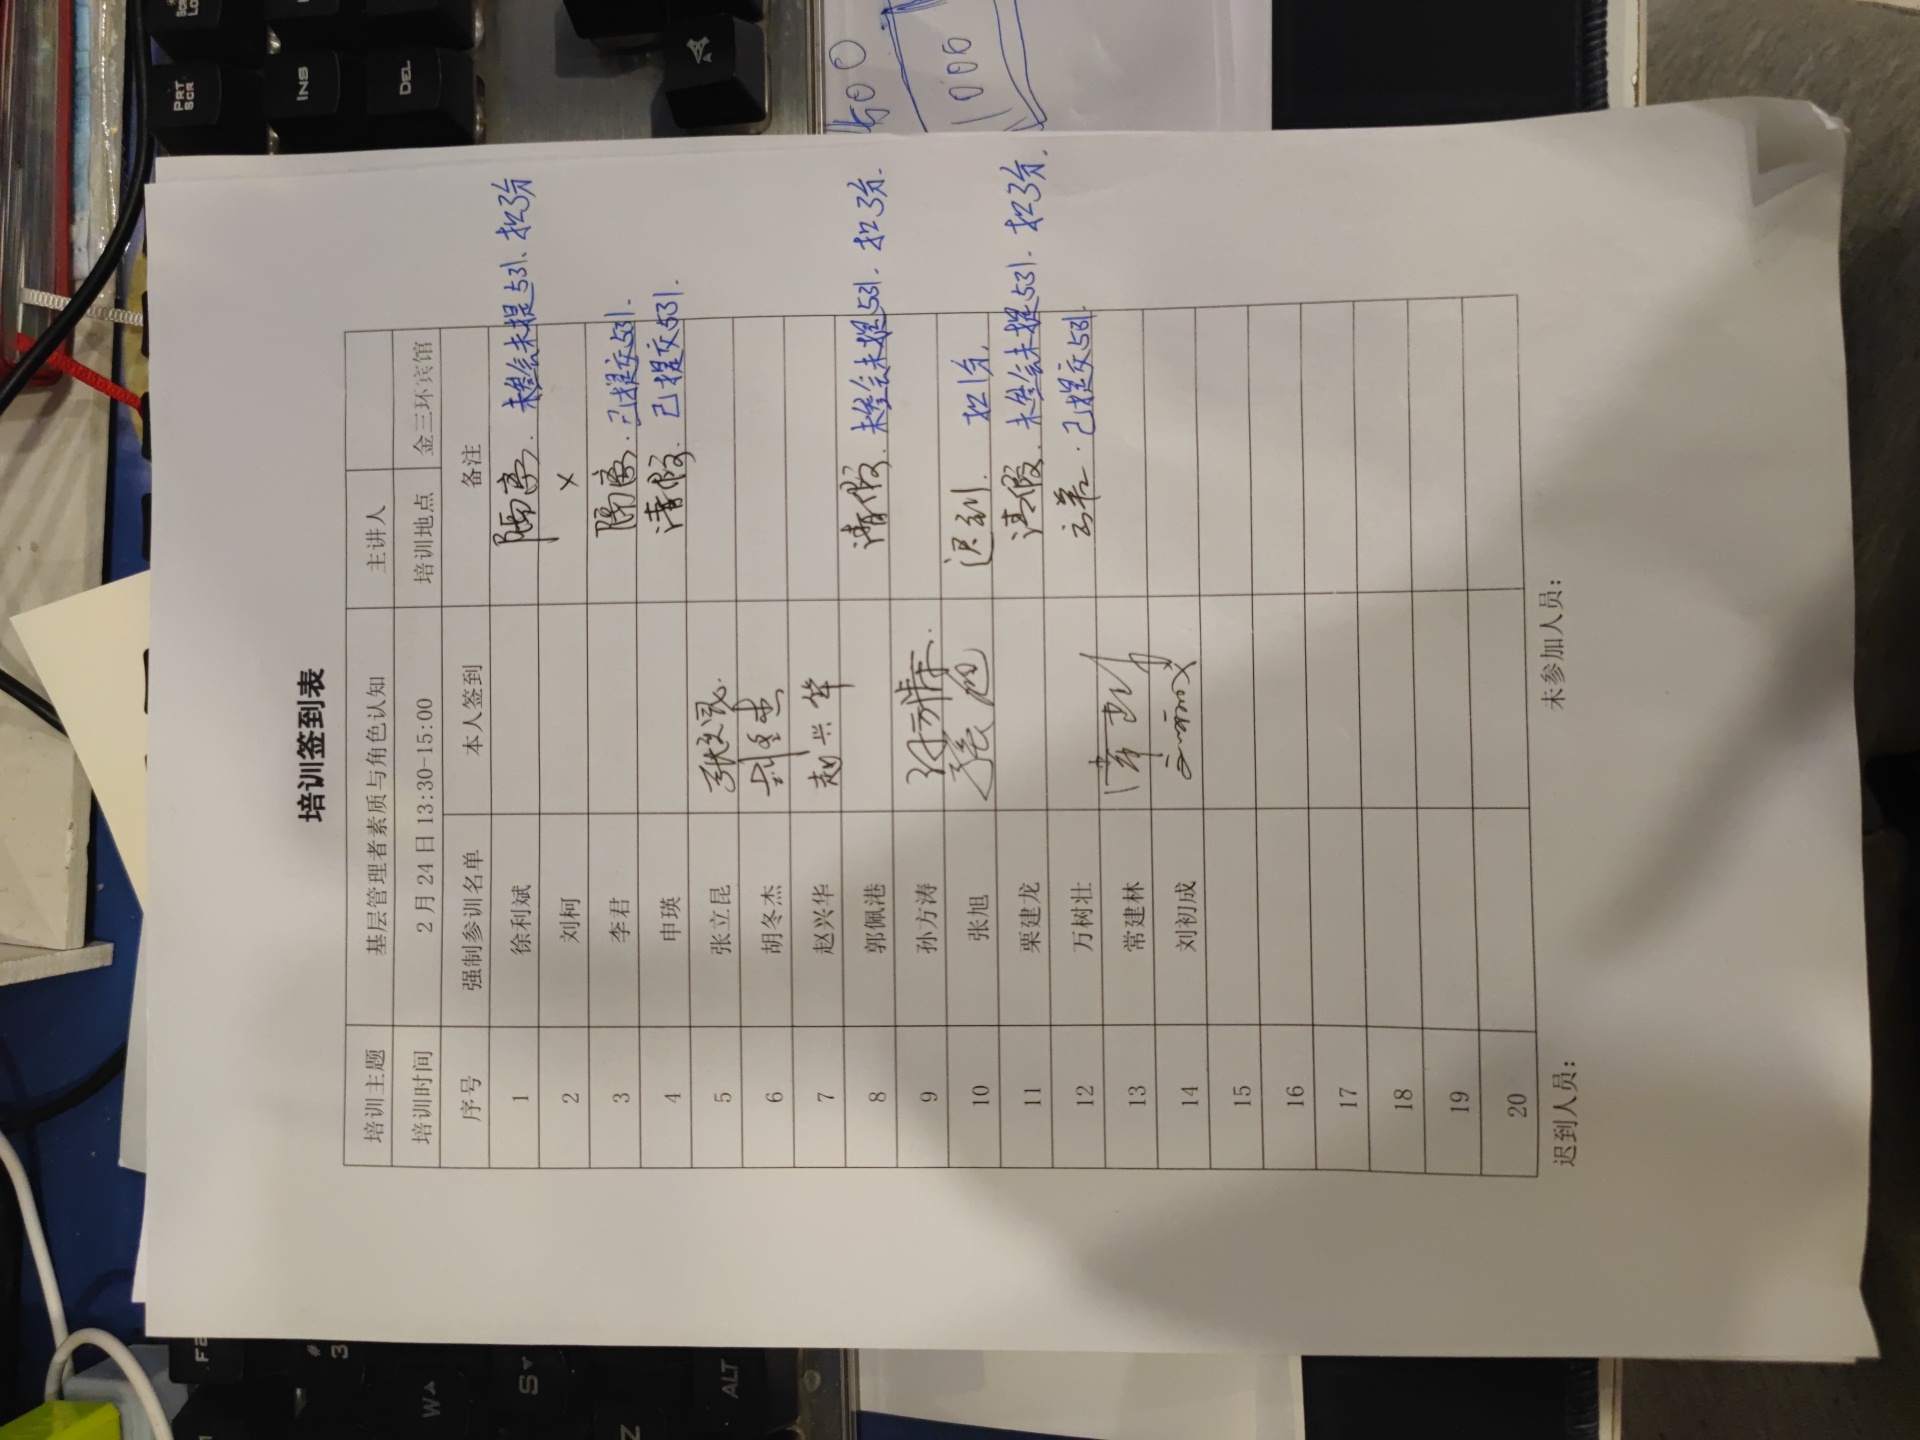 培训签到表
培训主题 基层管理者素质与角色认知 主讲人
培训时间 2月24日 13:30-15:00 培训地点 金三环宾馆
序号 强制参训名单 本人签到 备注
1 徐利斌 隔离. 未参会未提531、扣3分
2 刘柯 ×
3 李君 隔离. 已提交531.
4 申瑛 请假. 已提交531.
5 张立昆
6 胡冬杰
7 赵兴华 赵兴华
8 郭佩港 请假. 未参会未提531. 扣3分.
9 孙方涛 孙方涛.
10 张旭 张旭 迟到. 扣1分.
11 栗建龙 请假. 未参会未提531. 扣3分.
12 万树壮 出差. 已提交531.
13 常建林
14 刘初成
15
16
17
18
19
20
迟到人员: 未参加人员:
PRT SCR
INS
DEL
500
1000
W
S
ALT
Z
# 3